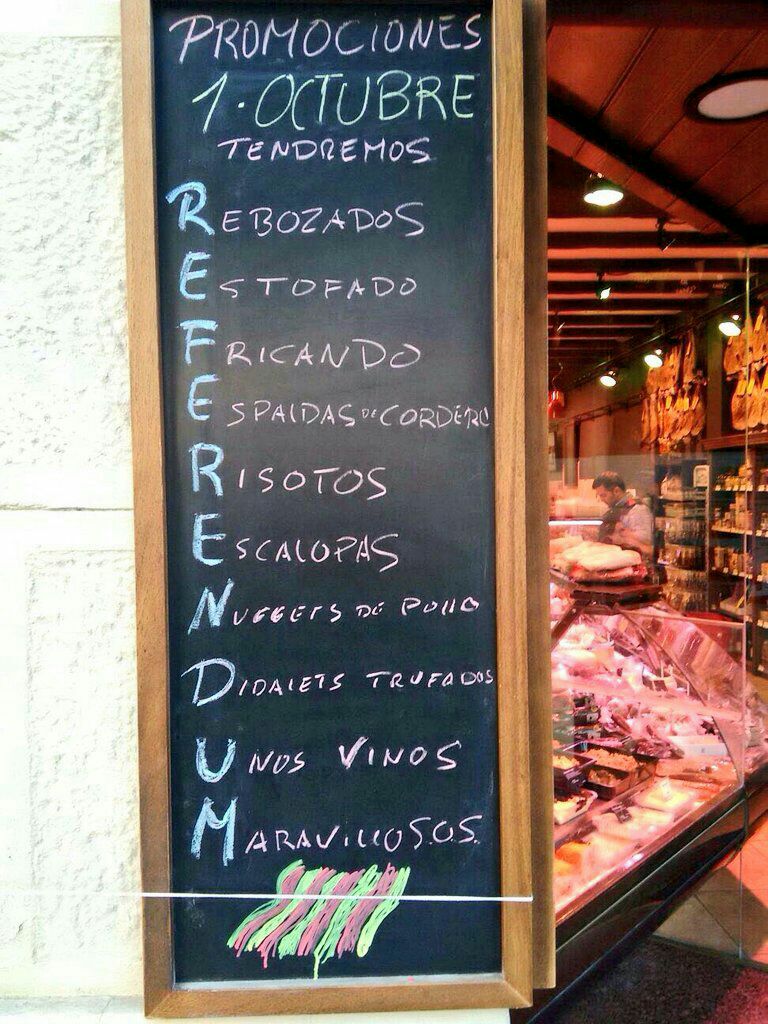 PROMOCIONES
1·OCTUBRE
TENDREMOS
REBOZADOS
ESTOFADO
FRICANDO
ESPALDAS DE CORDERO
RISOTOS
ESCALOPAS
NUGGETS DE POLLO
DIDALETS TRUFADOS
UNOS VINOS
MARAVILLOSOS.